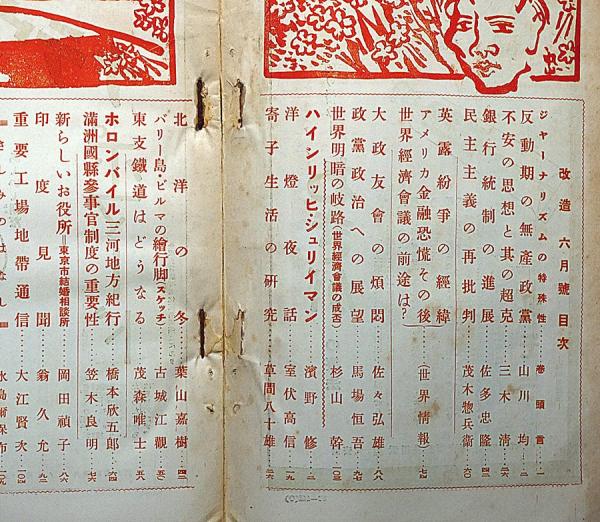 改造 六月號 目次
ジャーナリズムの特殊性……卷頭言…一
反動期の無產政黨……山川均…二
不安の思想と其の超克……三木清…
銀行統制の進展……佐多忠隆…
民主主義の再批判……茂木惣兵衞…六〇
英露紛爭の經緯
アメリカ金融恐慌その後
世界經濟會議の前途は?
(世界情報)…七四
大政友會の煩悶……佐々弘雄…八八
政黨政治への展望……馬場恒吾…九七
世界明暗の岐路(世界經濟會議の成否)……杉山幹…一〇三
ハインリッヒ・シュリイマン……濱野修…二
洋燈夜話……室伏高信…一九
寄子生活の研究……草間八十雄…二六
北洋の冬……葉山嘉樹…四三
バリー島・ビルマの繪行脚(スケッチ)……古城江觀…五〇
東支鐵道はどうなる……茂森唯士…五八
ホロンバイル三河地方紀行……橋本欣五郎…六四
滿洲國縣參事官制度の重要性……笠木良明…七六
新らしいお役所=東京市結婚相談所……岡田禎子…八六
印度見聞……翁久允…
重要工場地帶通信……大江賢次…